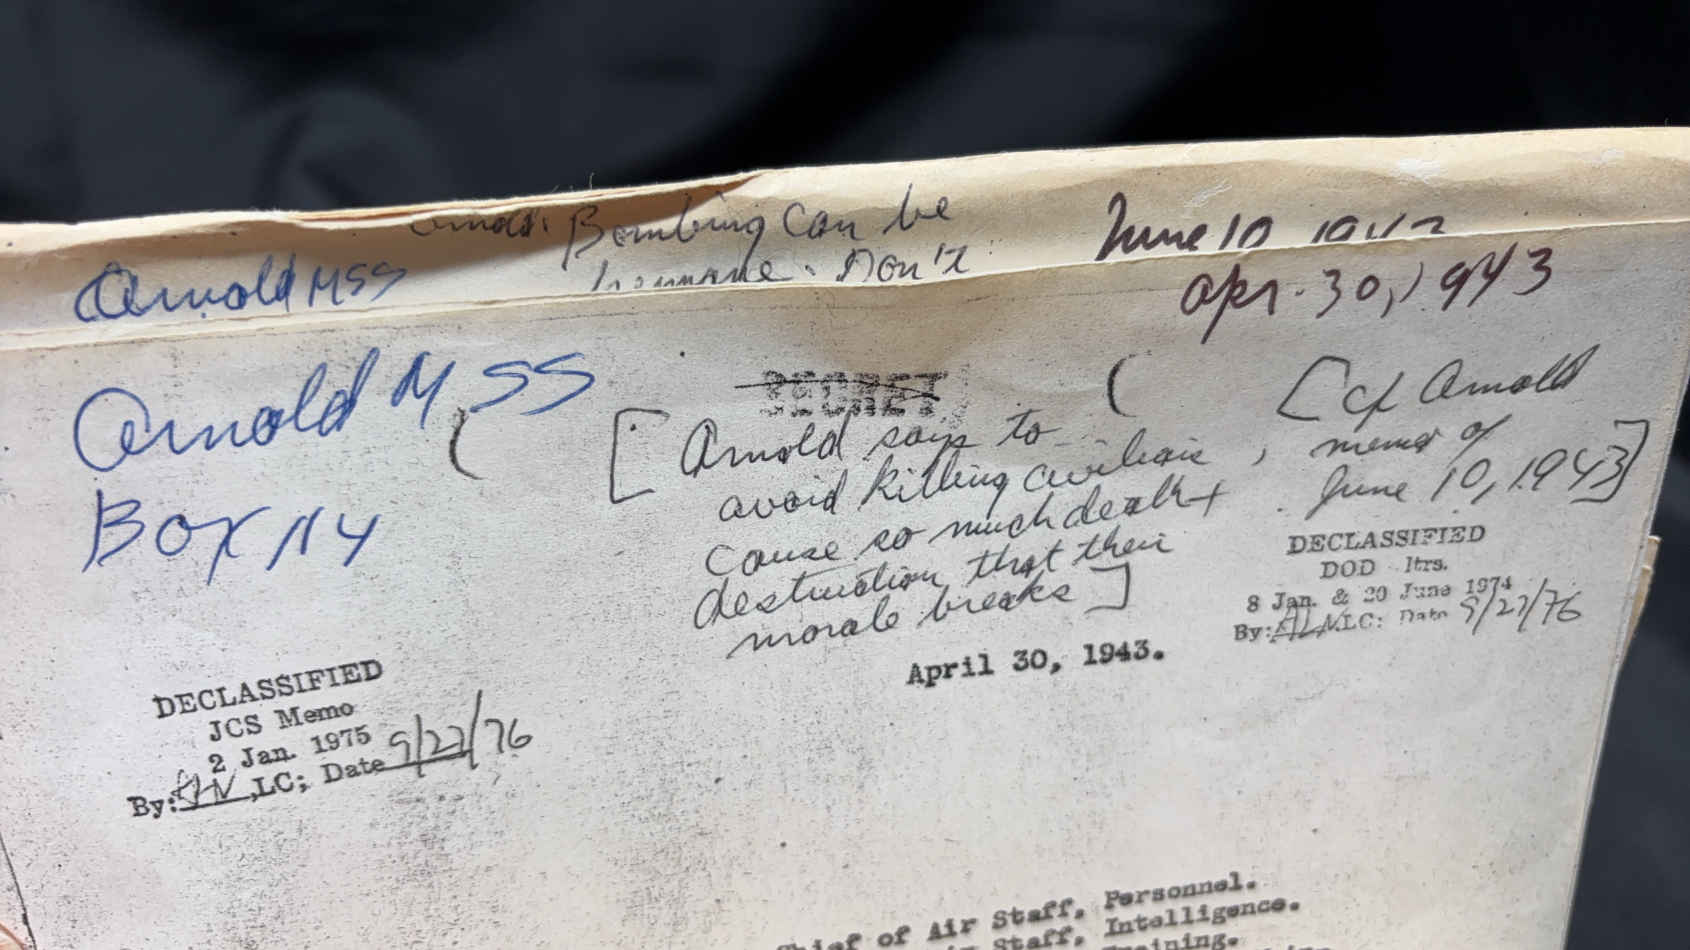 Arnold: Bombing can be
humane. Don't
June 10, 1943
Arnold MSS
Apr. 30, 1943
Arnold MSS
Box 114
SECRET
[Arnold says to
avoid killing civilians,
cause so much death +
destruction that their
morale breaks]
[cf Arnold
memo of
June 10, 1943]
DECLASSIFIED
DOD ltrs.
8 Jan. & 20 June 1974
By: LC: Date 9/27/76
April 30, 1943.
DECLASSIFIED
JCS Memo
2 Jan. 1975
By: ,LC; Date 9/27/76
Chief of Air Staff, Personnel.
Staff, Intelligence.
Training.